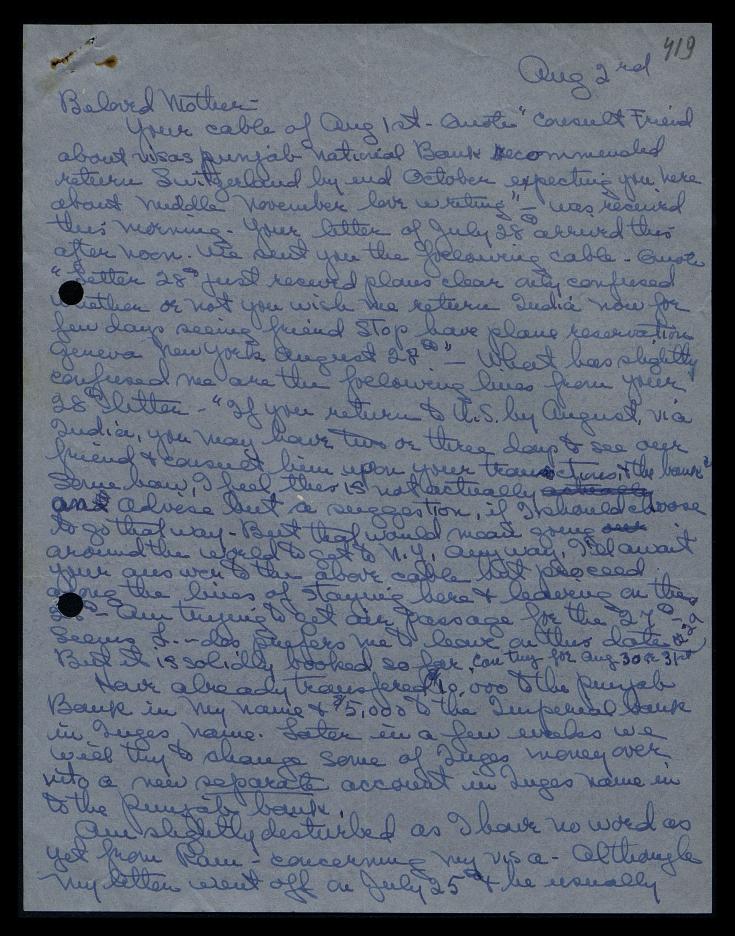 419
Aug 2nd
Beloved Mother-
Your cable of Aug 1st - Quote "Consult Friend
about visas punjab national Bank recommended
return Switzerland by end October expecting you here
about middle November love writing" - was received
this morning. Your letter of July 28 arrived this
after noon. We sent you the following cable - Quote
"Letter 28th just received plans clear only confused
whether or not you wish me return India now for
few days seeing friend Stop have plane reservation
Geneva New York August 28th" - What has slightly
confused me are the following lines from your
28th letter - "If you return to U.S. by August, via
India, you may have two or three days to see our
friend & consult him upon your transactions, & the bank"
Some how, I feel this is not actually actually
an advise but a suggestion, if I should choose
to go that way - But that would mean going
around the world to get to N.Y., anyway, I'll await
your answer to the above cable but proceed
along the lines of staying here & leaving on the
28th - Am trying to get air passage for the 27th or 29
Seems das prefers me to leave on this date
But it is solidly booked so far, for Aug 30 or 31st
Have already transfered $10,000 to the punjab
Bank in my name & $5,000 to the Imperial bank
in Inges name. Later in a few weeks we
will try to change some of Inges money over
into a new separate account in Inges name in
to the punjab bank.
Am slightly disturbed as I have no word as
yet from Ram - concerning my visa - Although
my letter went off on July 25th & he usually